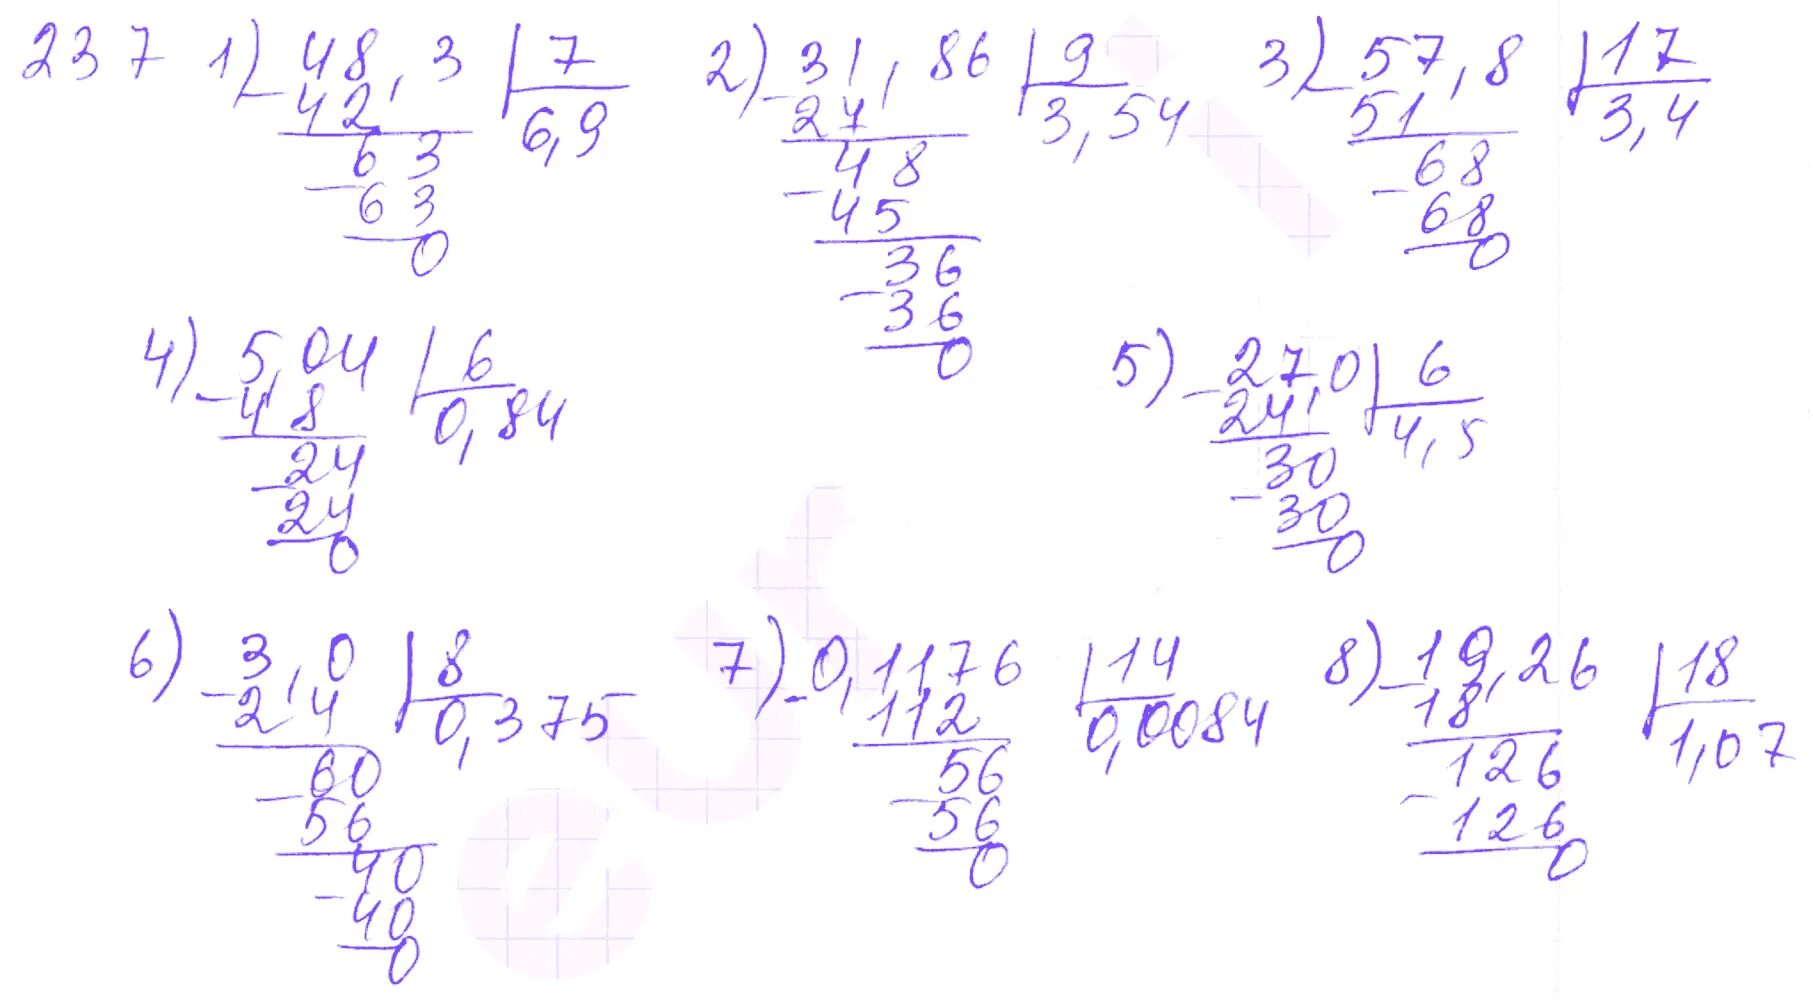 237 1) 48,3 7 2) 31,86 9 3) 57,8 17
42 6,9 27 3,54 51 3,4
63 48 68
63 45 68
0 36 0
36
0
4) 5,04 6 5) 27,0 6
48 0,84 24 4,5
24 30
24 30
0 0
6) 3,0 8 7) 0,1176 14 8) 19,26 18
2,4 0,375 112 0,0084 18 1,07
60 56 126
56 56 126
40 0 0
40
0